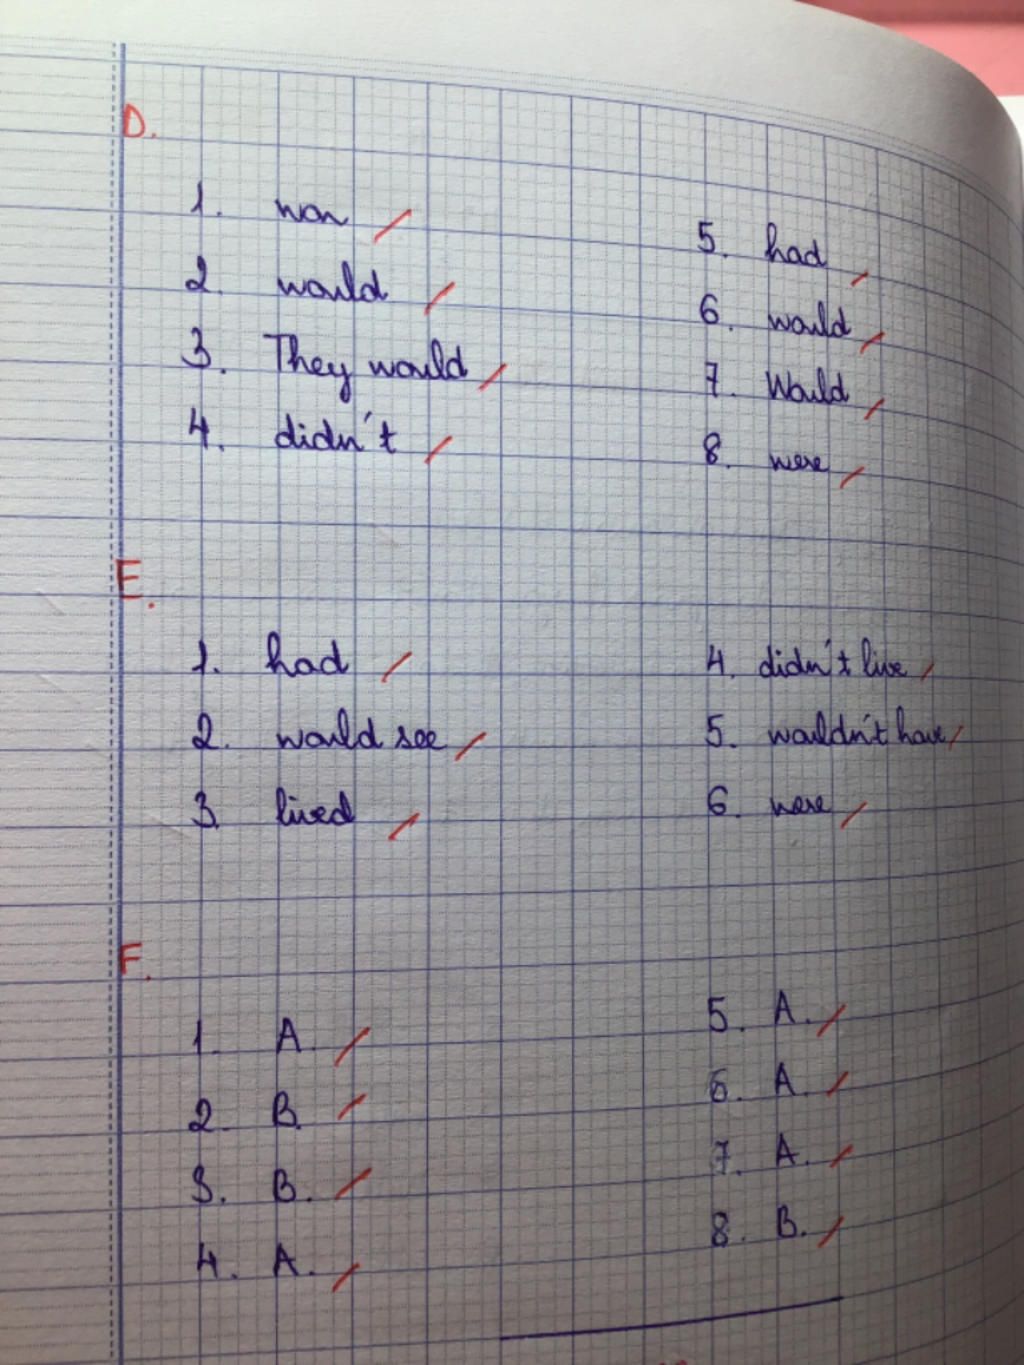 D.
1. won
2. would
3. They would
4. didn't
5. had
6. would
7. Would
8. were
E.
1. had
2. would see
3. lived
4. didn't live
5. wouldn't have
6. were
F.
1. A.
2. B.
3. B.
4. A.
5. A.
6. A.
7. A.
8. B.